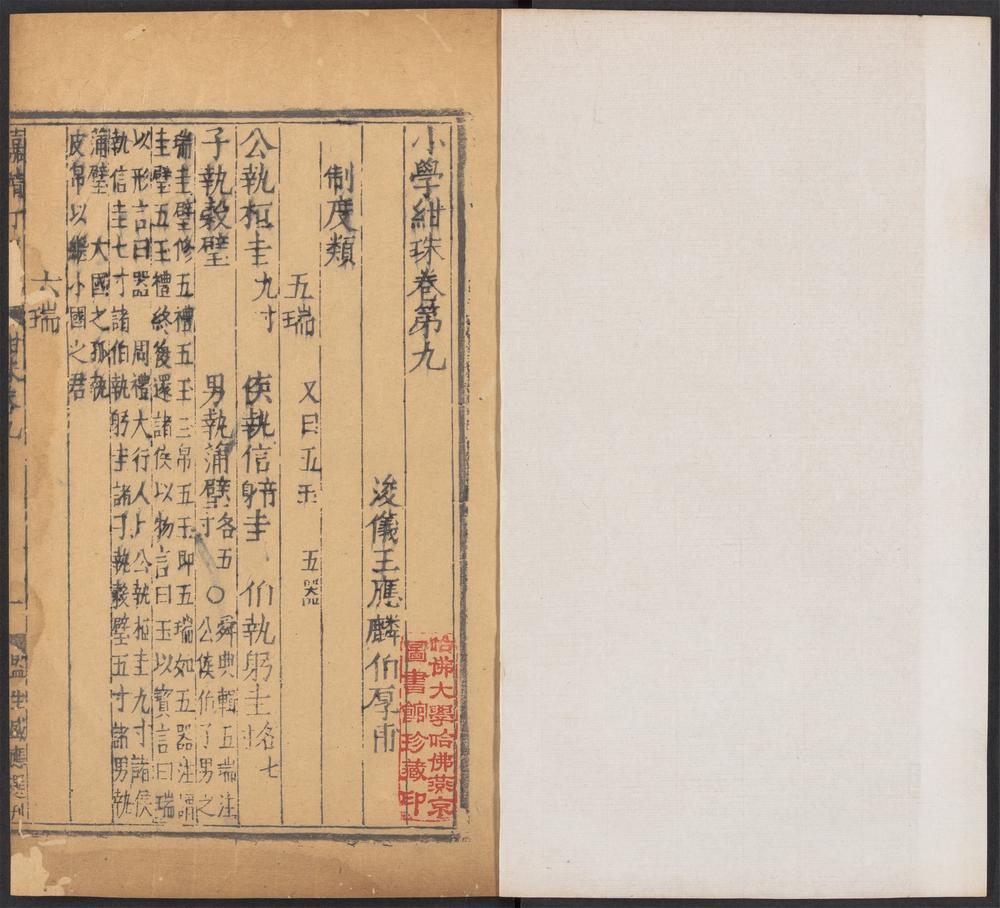 小學紺珠卷第九
浚儀王應麟伯厚甫
制度類
五瑞 又曰五玉 五器
公執桓圭九寸 侯執信圭 伯執躬圭各七寸
子執穀璧 男執蒲璧各五寸○舜典輯五瑞注公侯伯子男之
瑞圭璧修五禮五玉三帛五玉即五瑞如五器注謂
圭璧五玉禮終後還諸侯以物言曰玉以寶言曰瑞
以形言曰器 周禮大行人上公執桓圭九寸諸侯
執信圭七寸諸伯執躬圭諸子執穀璧五寸諸男執
蒲璧 大國之孤執
皮帛以繼小國之君
六瑞
嘉靖丁
監生戚應
刊
哈佛大學哈佛燕京
圖書館珍藏印